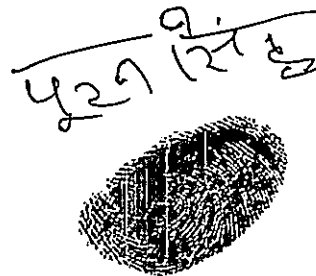 पूरन सिंह